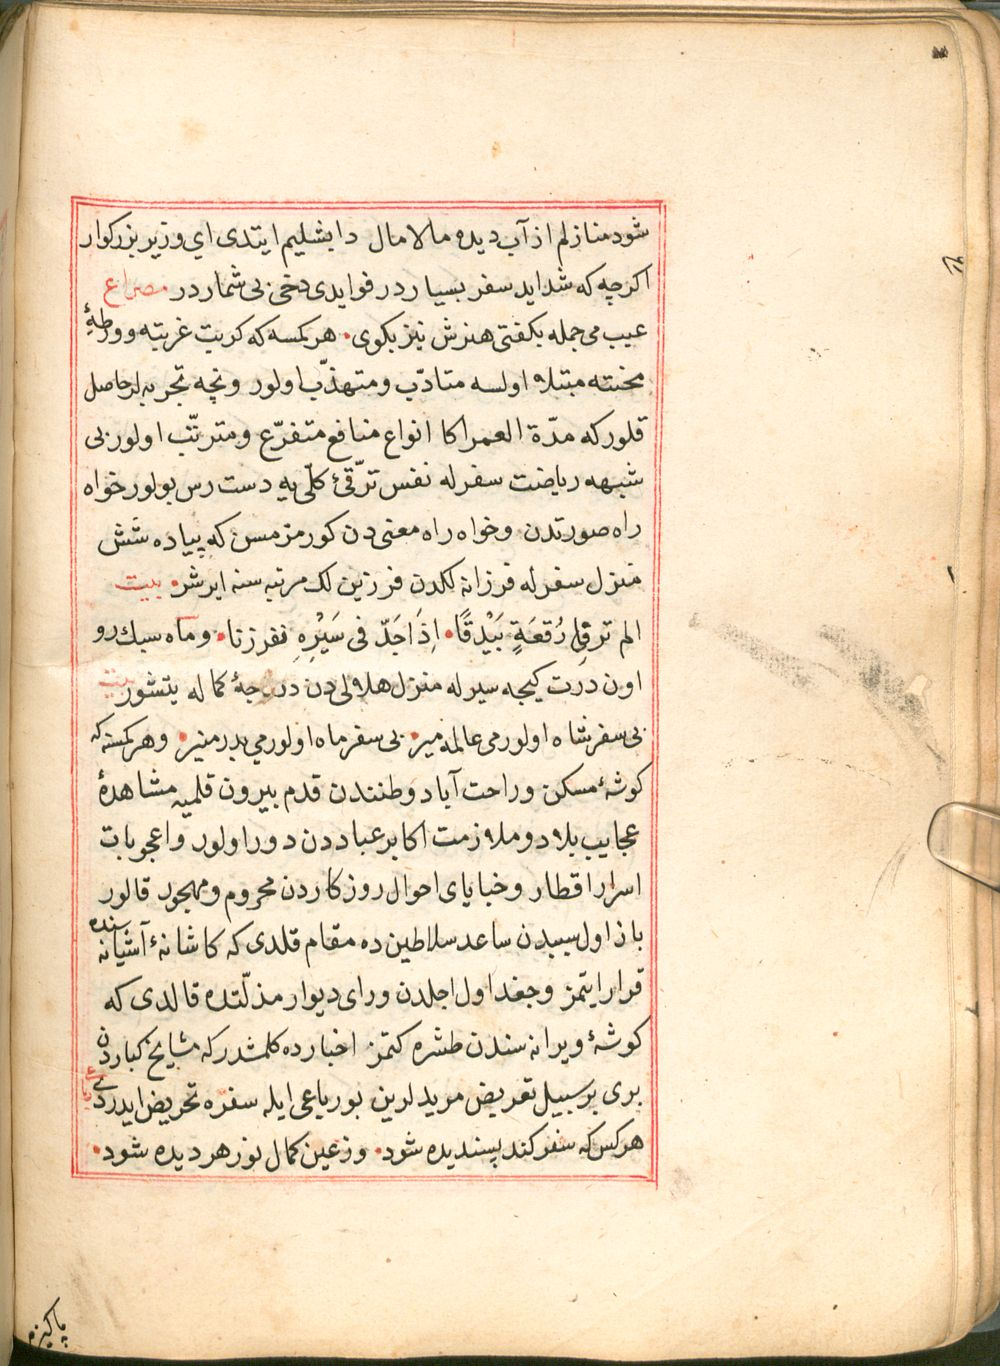 شود منازلم از آب دیده مالامال دابشلیم ایتدی ای وزیر بزرکوار
اکرچه که شداید سفر بسیار در فوایدی دخی بی شمار در مصراع
عیب می جمله بکفتی هنرش نیز بکوی • هر کمسه که کربت غربته و ورطهٔ
محنته مبتلا اولسه متادّب و متهذّب اولور و نچه تجربه لر حاصل
قلور که مدّة العمر اکا انواع منافع متفرّع و مترتّب اولور بی
شبهه ریاضت سفرله نفس ترّقیٔ کلّی یه دست رس بولور خواه
راه صورتدن و خواه راه معنی دن کورمزمسن که پیاده شش
منزل سفرله فرزانه لکدن فرزین لک مرتبه سنه ایرشر • بیت
الم تر فی رُقعَةٍ بَیْدقًا • اِذَا جَدّ فی سَیْرِهِ نفرزنا • و ماه سبک رو
اون درت کیجه سیرله منزل هلالی دن درجهٔ کماله یتشور بیت
بی سفر شاه اولورمی عالمه میر • بی سفر ماه اولورمی بدر منیر • و هر کمسته که
کوشهٔ مسکن و راحت آباد وطنندن قدم بیرون قلمیه مشاهدهٔ
عجایب بلاد و ملازمت اکابر عباددن دور اولور و اعجوبات
اسرار اقطار و خبایای احوال روزکاردن محروم و مهجور قالور
باز اول سببدن ساعد سلاطین ده مقام قلدی که کاشانهٔ آشیانه سنده
قرار ایتمز و جغد اول اجلدن ورای دیوار مذلّتده قالدی که
کوشهٔ ویرانه سندن طشره کتمز اخبارده کلمشدر که مشایخ کباردن
بری بر سبیل تعریض مریدلرین بو رباعی ایله سفره تحریض ایدردی
هر کس که سفر کند پسندیده شود • وز عین کمال نور هر دیده شود •
پاکیزه